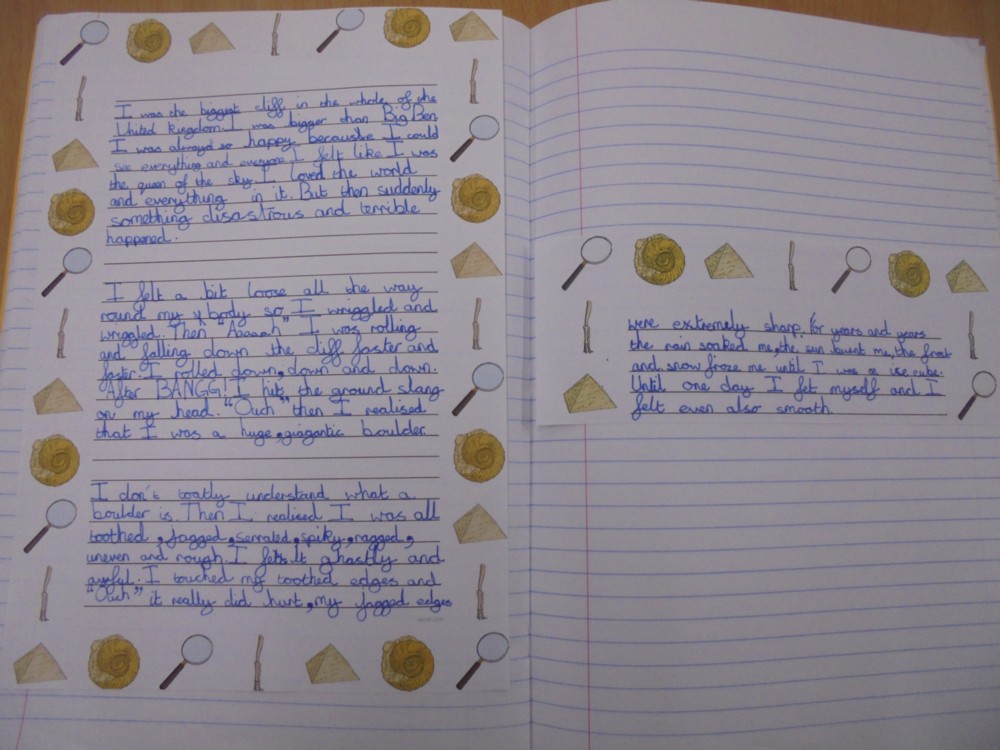 I was the biggest cliff in the whole of the
United kingdom. I was bigger than Big Ben
I was always so happy because I could
see everything and everyone. I felt like I was
the queen of the sky. I loved the world
and everything in it. But then suddenly
something disastrous and terrible
happened.
I felt a bit loose all the way
round my body so I wriggled and
wriggled. Then "Aaaaah" I was rolling
and falling down the cliff faster and
faster. I rolled down, down and down.
After BANGG! I hit the ground slang
on my head. "Ouch" then I realised
that I was a huge, giagantic boulder
I don't toatly understand what a
boulder is. Then I realised I was all
toothed, jagged, serrated, spiky, ragged,
uneven and rough. I felt ghastly and
awful. I touched my toothed edges and
"Ouch" it really did hurt, my jagged edges
were extremely sharp. For years and years
the rain soaked me, the sun burnt me, the frost
and snow froze me until I was a ise cube.
Until one day I felt myself and I
felt even also smooth.